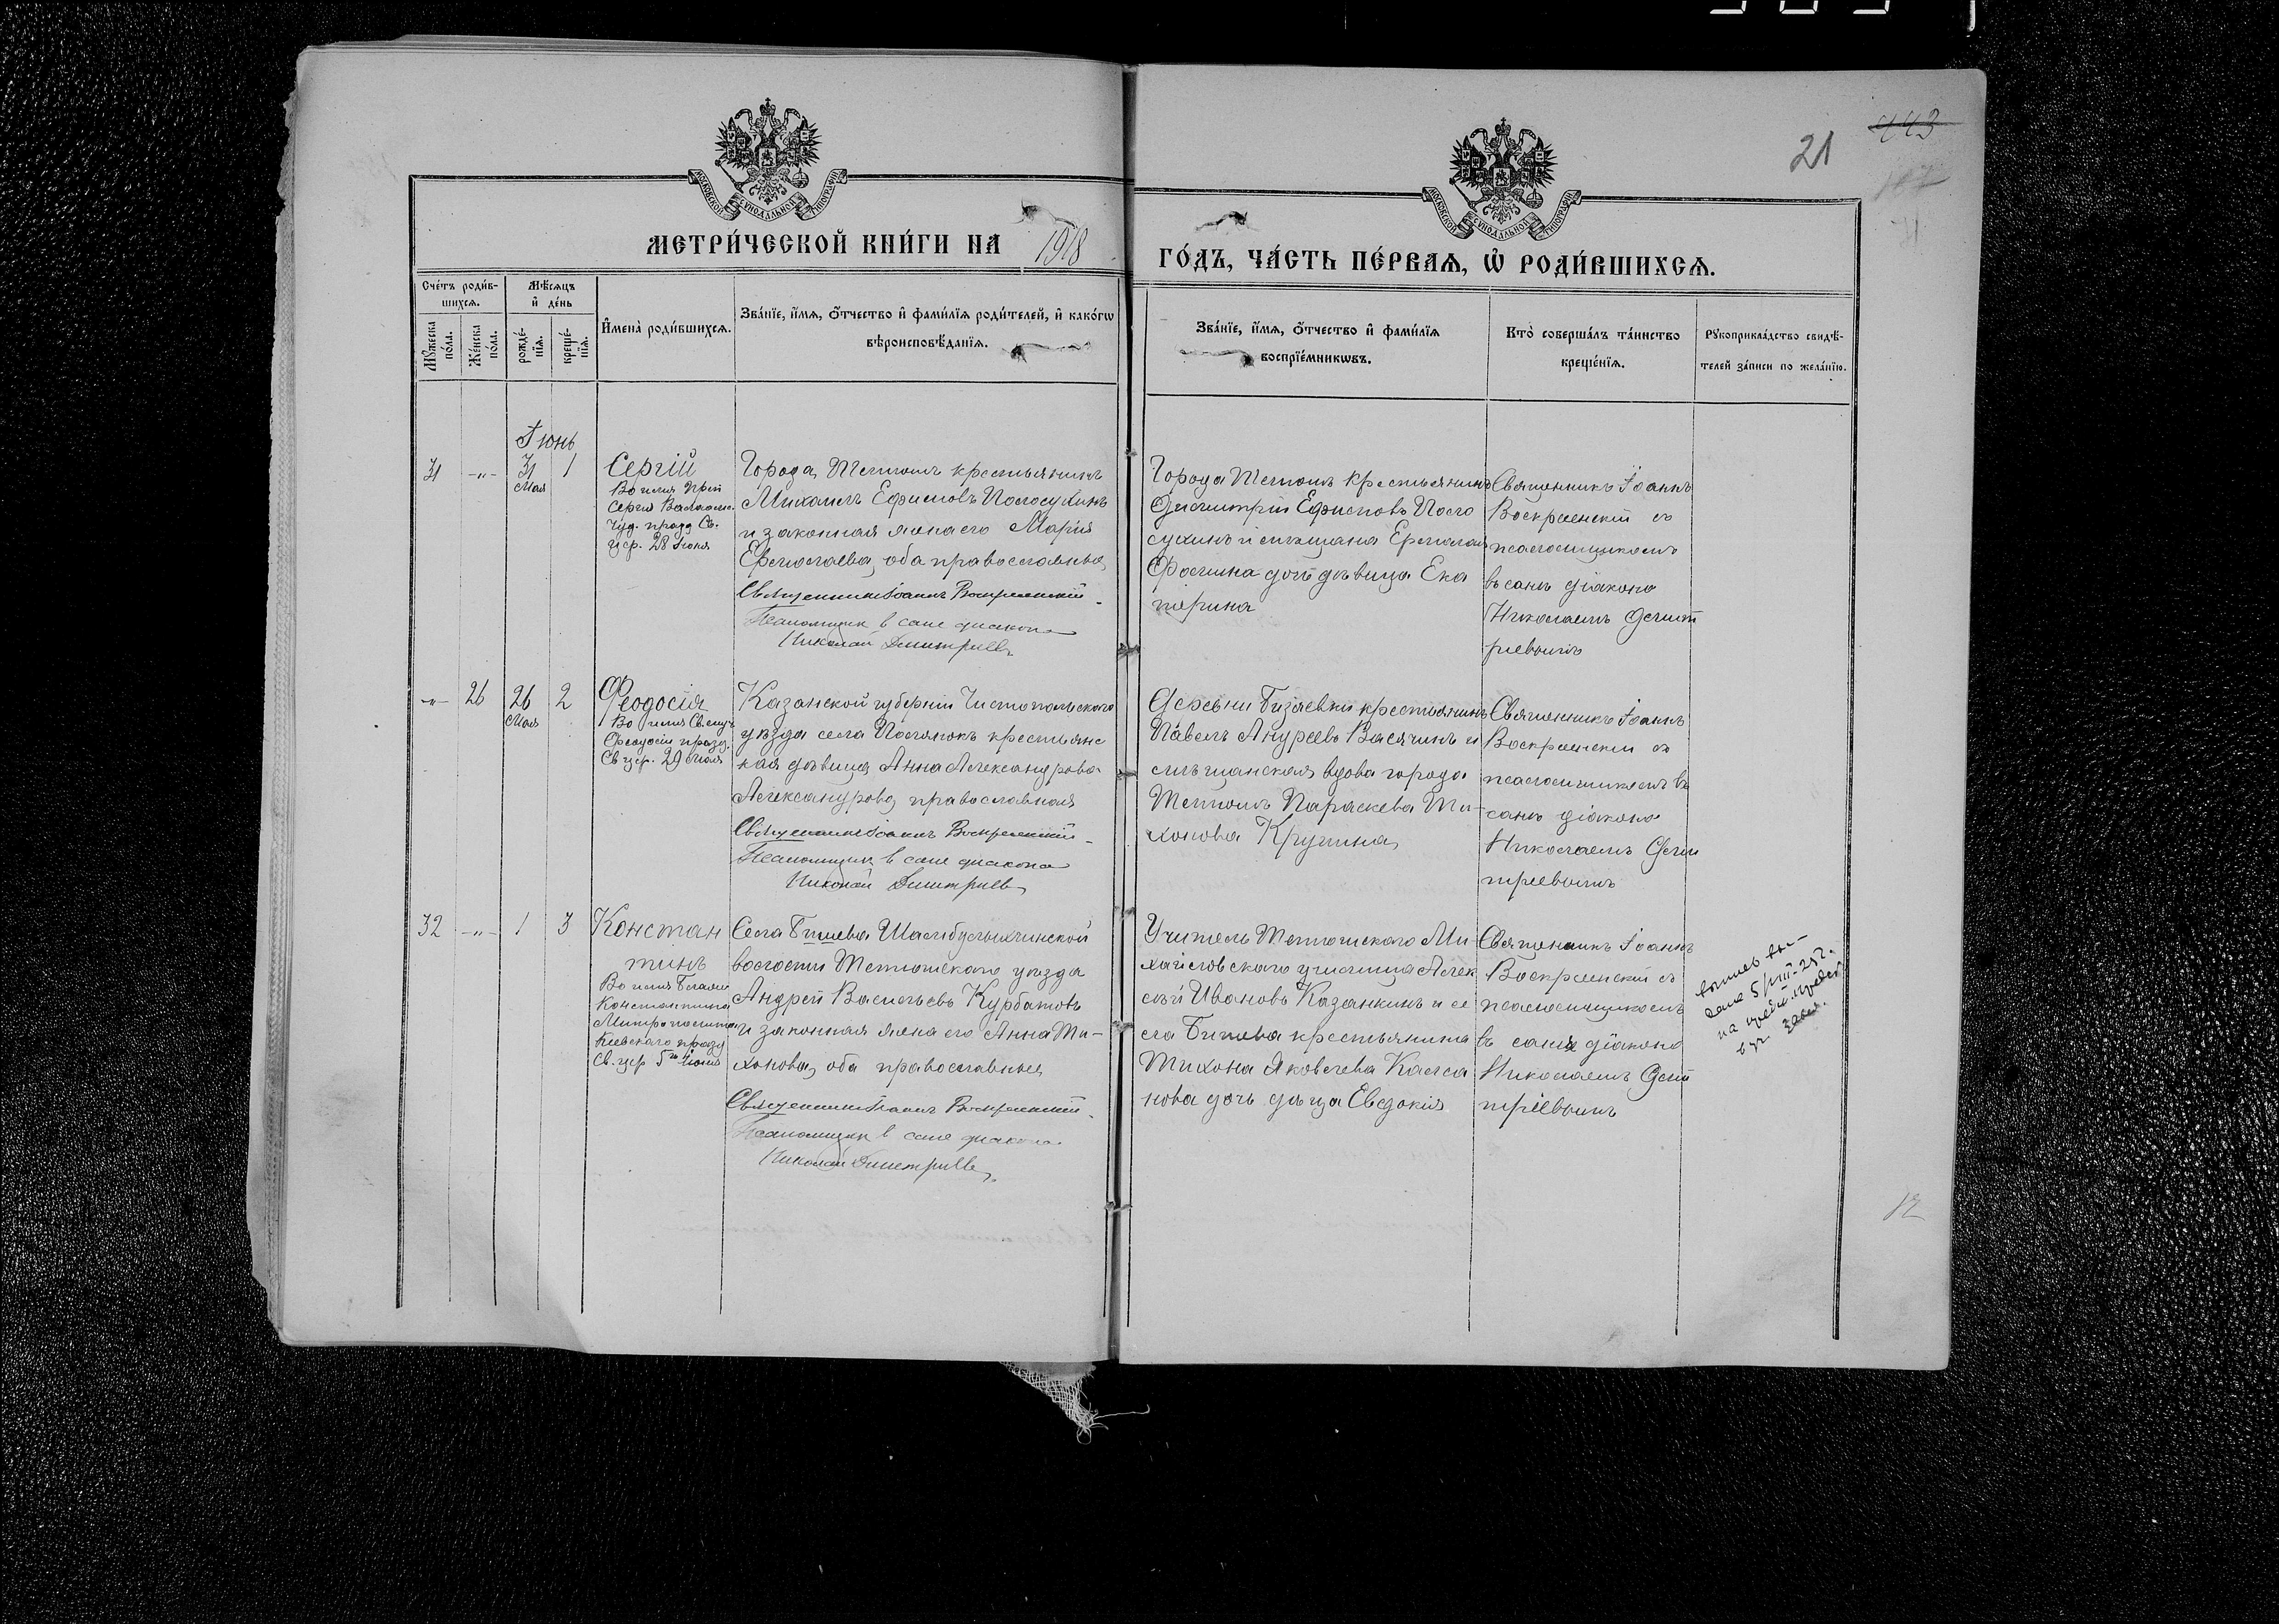 21
443
МОСКОВСКОЙ СѴНОДАЛЬНОЙ ТИПОГРАФІИ
МОСКОВСКОЙ СѴНОДАЛЬНОЙ ТИПОГРАФІИ
МЕТРИ́ЧЕСКОЙ КНИ́ГИ НА 1918
ГО́ДЪ, ЧА́СТЬ ПЕ́РВАѦ, Ѡ҆ РОДИ́ВШИХСѦ.
Сче́тъ роди́в-
шихсѧ.
Мꙋжеска по́ла.
Же́нска по́ла.
Мѣ́сѧцъ
и҆ де́нь
рожде́-
нїѧ.
креще́-
нїѧ.
И҆мена̀ роди́вшихсѧ.
Зва́нїе, и҆́мѧ, ѻ҆́тчество и҆ фами́лїѧ роди́телей, и҆ како́гѡ
вѣроисповѣ́данїѧ.
Зва́нїе, и҆́мѧ, ѻ҆́тчество и҆ фами́лїѧ
воспрїе́мникѡвъ.
Кто̀ соверша́лъ та́инство
креще́нїѧ.
Рꙋкоприкла́дство свидѣ́-
телей за́писи по жела́нїю.
Іюнь
31 -"- 31 1
Мая
Сергій
Во имя Преп
Сергія Валаамс.
Чуд. празд Св.
цер. 28 Іюня
Города Тетюшъ крестьянинъ
Михаилъ Ефимовъ Полосухинъ
и законная жена его Марія
Ермолаева, оба православные
Священникъ Іоаннъ Воскресенскій
Псаломщик в сане диакона
Николай Димитриев
Города Тетюшъ крестьянинъ
Димитрій Ефимовъ Поло
сухинъ и мѣщана Ермолая
Фомина дочь дѣвица Ека
терина
Священникъ Іоаннъ
Воскресенскій съ
псаломщикомъ
въ санѣ діакона
Николаемъ Димит
ріевымъ
-"- 26 26 2
Мая
Феодосія
Во имя Св. муч
Феодосіи празд.
Св цер. 29 Мая
Казанской губерніи Чистопольскаго
уѣзда села крестьянс
кая дѣвица Анна Александрова
Александрова, православная
Священникъ Іоаннъ Воскресенскій
Псаломщик в сане диакона
Николай Димитриев
Деревни Бизяевки крестьянинъ
Павелъ Андреевъ Васячинъ и
мѣщанская вдова города
Тетюшъ Параскева Ти-
хонова Крупина
Священникъ Іоаннъ
Воскресенскій съ
псаломщикомъ въ
санѣ діакона
Николаемъ Дими
тріевымъ
32 -"- 1 3
Констан
тинъ
Во имя
Константина
Митрополита
Кіевскаго празд
Св. цер 5го Іюня
Села Бишева Шамбулыхчинской
волости Тетюшскаго уѣзда
Андрей Васильевъ Курбатовъ
и законная жена его Анна Ти-
хонова, оба православные
Священникъ Іоаннъ Воскресенскій
Псаломщик в сане диакона
Николай Димитриев
Учитель Тетюшскаго Ми-
хайловскаго училища Алек
сѣй Ивановъ Казанкинъ и се
ла Бишева крестьянина
Тихона Яковлева Калса
нова дочь дѣвица Евдокія
Священникъ Іоаннъ
Воскресенскій съ
псаломщикомъ
въ санѣ діакона
Николаемъ Дими
тріевымъ
выпись вы-
дана 5/VIII-25 г.
на предм. предст
в уч. завед.
12